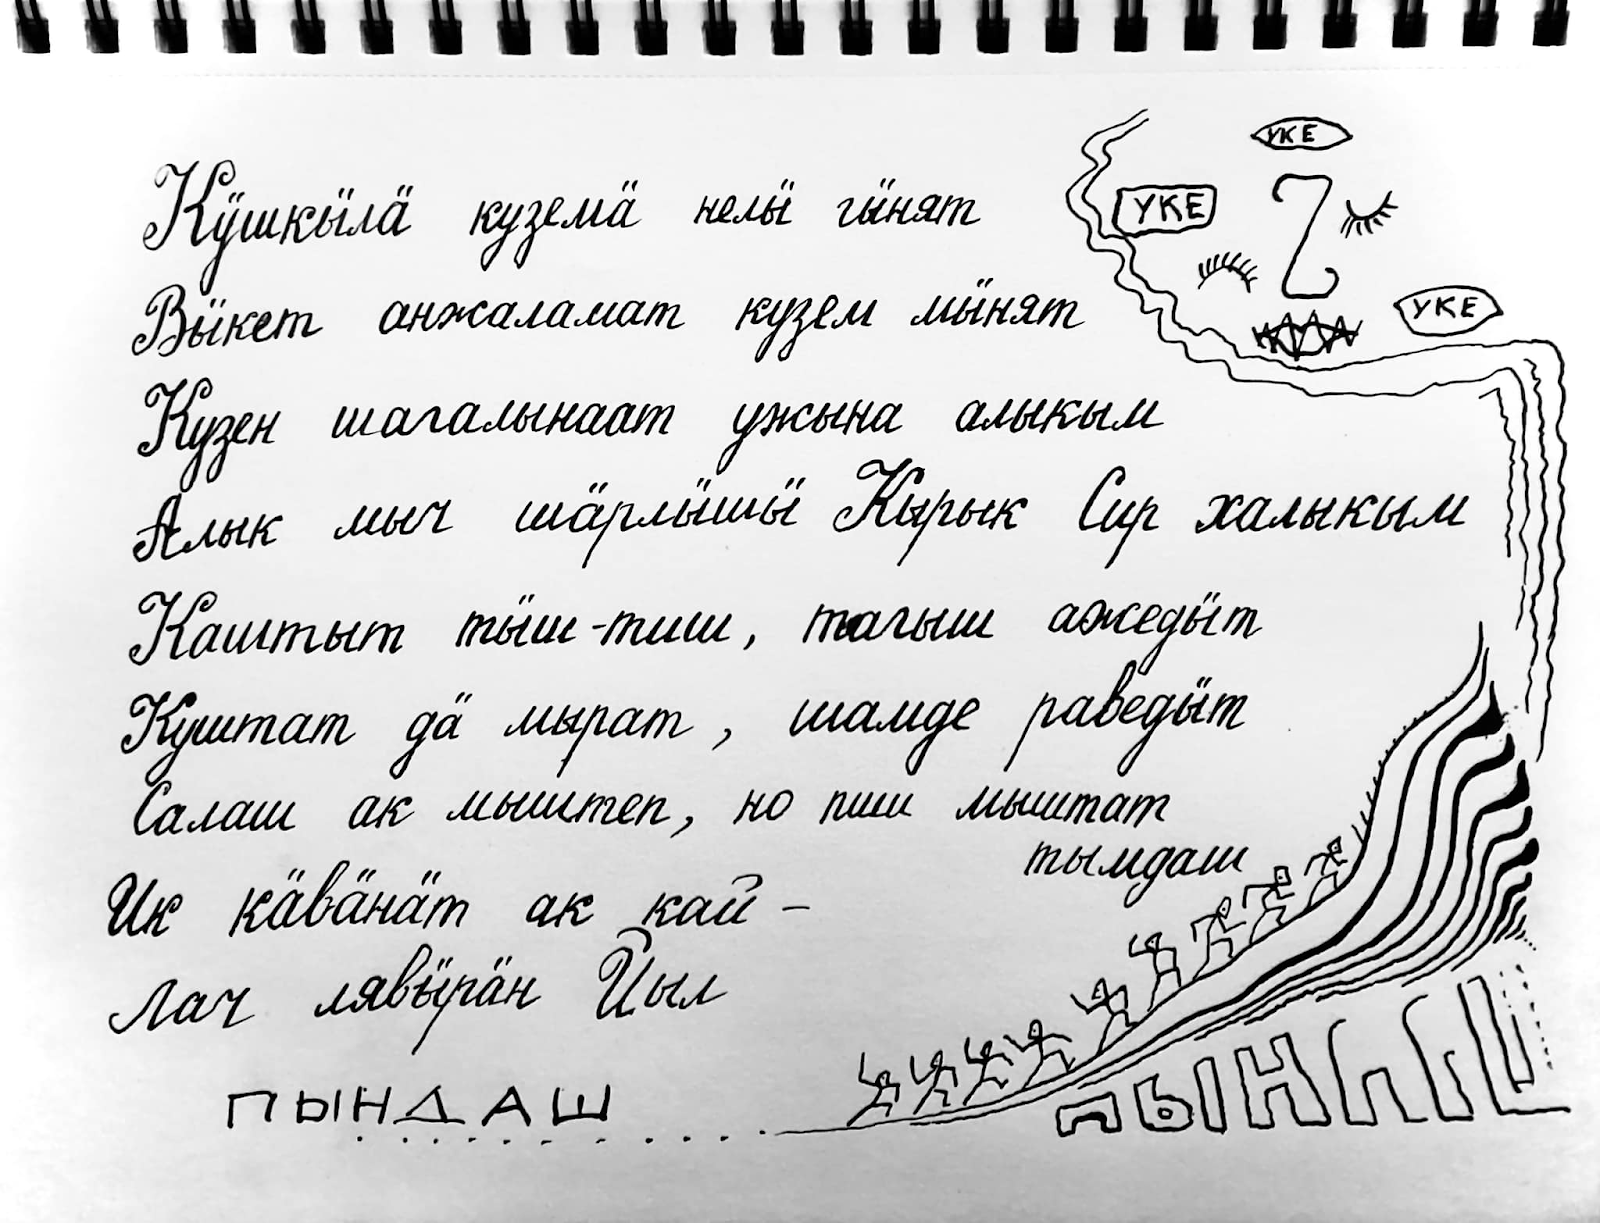 Кӱшкӹлӓ куземӓ нелӹ гӹнят
Вӹкет анжаламат кузем мӹнят
Кузен шагалынаат ужына алыкым
Алык мыч шӓрлӹшӹ Кырык Сир халыкым
Каштыт тӹш-тиш, тагыш ажедӹт
Куштат дӓ мырат, шамде раведӹт
Салаш ак мыштеп, но пиш мыштат
тымдаш
Ик кӓвӓнӓт ак кай –
Лач лявӹрӓн Йыл
ПЫНДАШ
УКЕ
УКЕ
УКЕ